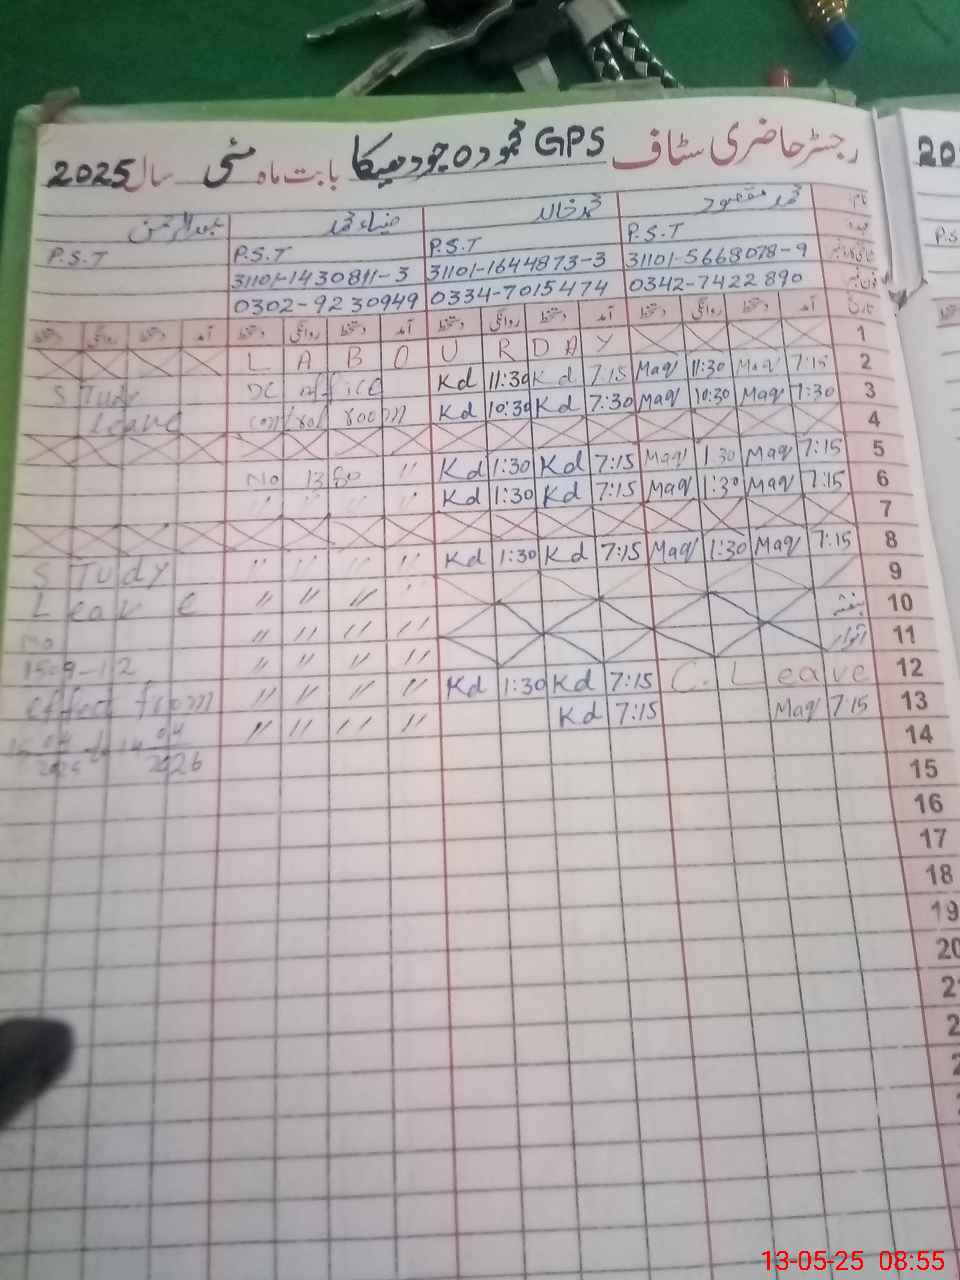 رجسٹر حاضری سٹاف GPS بابت ماہ مئی سال 2025
نام محمد مقصود محمد خالد ضیاء محمد عبدالرحمن
عہدہ P.S.T P.S.T P.S.T P.S.T
31101-5668078-9 31101-1644873-3 31101-1430811-3
0342-7422890 0334-7015474 0302-9230949
تاریخ آمد دستخط روانگی دستخط آمد دستخط روانگی دستخط آمد دستخط روانگی دستخط آمد دستخط روانگی دستخط
L A B O U R D A Y 1
Study DC office Kd 11:30 Kd 7:15 Maq 11:30 Maq 7:15 2
Leave control room Kd 10:30 Kd 7:30 Maq 10:30 Maq 7:30 3
4
No 1380 " Kd 1:30 Kd 7:15 Maq 1:30 Maq 7:15 5
" " " " Kd 1:30 Kd 7:15 Maq 1:30 Maq 7:15 6
7
STudy " " " " Kd 1:30 Kd 7:15 Maq 1:30 Maq 7:15 8
Leave " " " " 9
No " " " " ہفتہ 10
" " " " اتوار 11
effect from " " " " Kd 1:30 Kd 7:15 C.Leave 12
" " " " Kd 7:15 Maq 7:15 13
2026 14
15
16
17
18
19
20
13-05-25 08:55